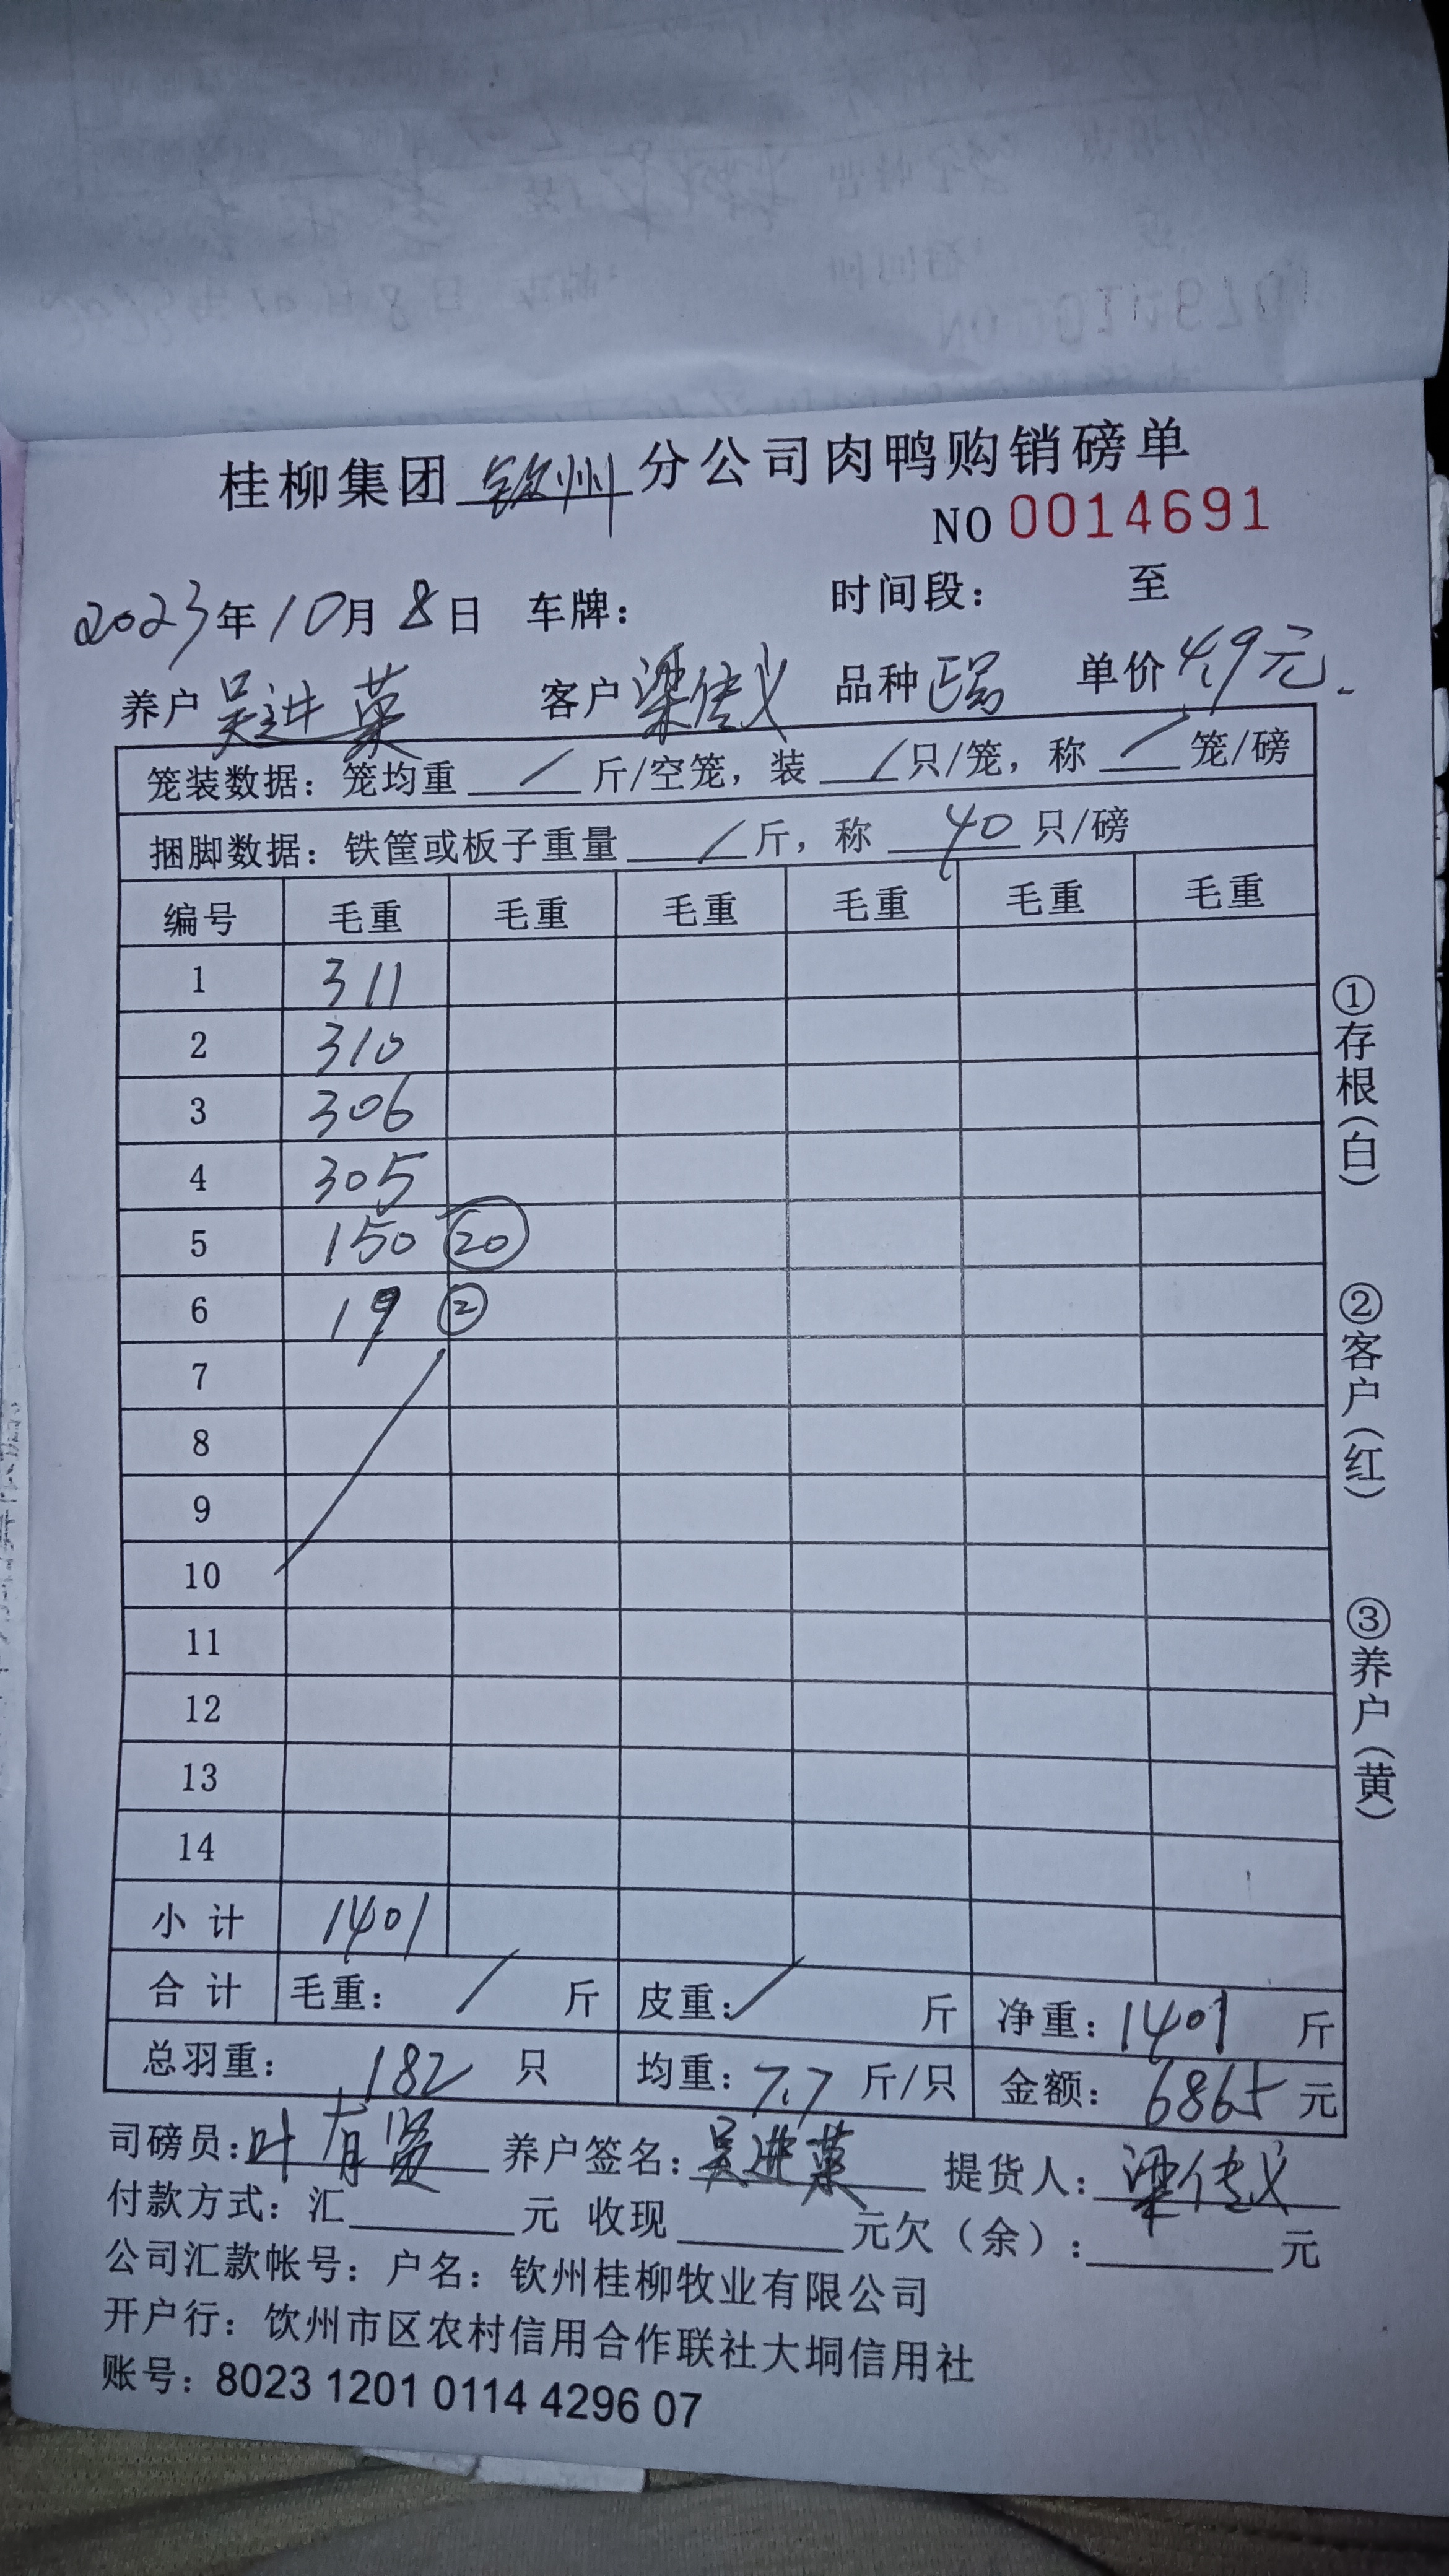 桂柳集团 钦州 分公司肉鸭购销磅单
NO 0014691
2023年10月8日 车牌： 时间段： 至
养户 吴进 客户 梁传义 品种 单价 4.9元
笼装数据：笼均重 / 斤/空笼，装 / 只/笼，称 / 笼/磅
捆脚数据：铁筐或板子重量 / 斤，称 40 只/磅
编号 毛重 毛重 毛重 毛重 毛重 毛重
1 311
2 310
3 306
4 305
5 150 20
6 19 2
7
8
9
10
11
12
13
14
小计 1401
合计 毛重： / 斤 皮重： / 斤 净重：1401 斤
总羽重： 182 只 均重：7.7 斤/只 金额：6865 元
司磅员：叶有贤 养户签名：吴进 提货人：梁传义
付款方式：汇 元 收现 元欠（余）： 元
公司汇款帐号：户名：钦州桂柳牧业有限公司
开户行：饮州市区农村信用合作联社大垌信用社
账号：8023 1201 0114 4296 07
①存根（白）
②客户（红）
③养户（黄）